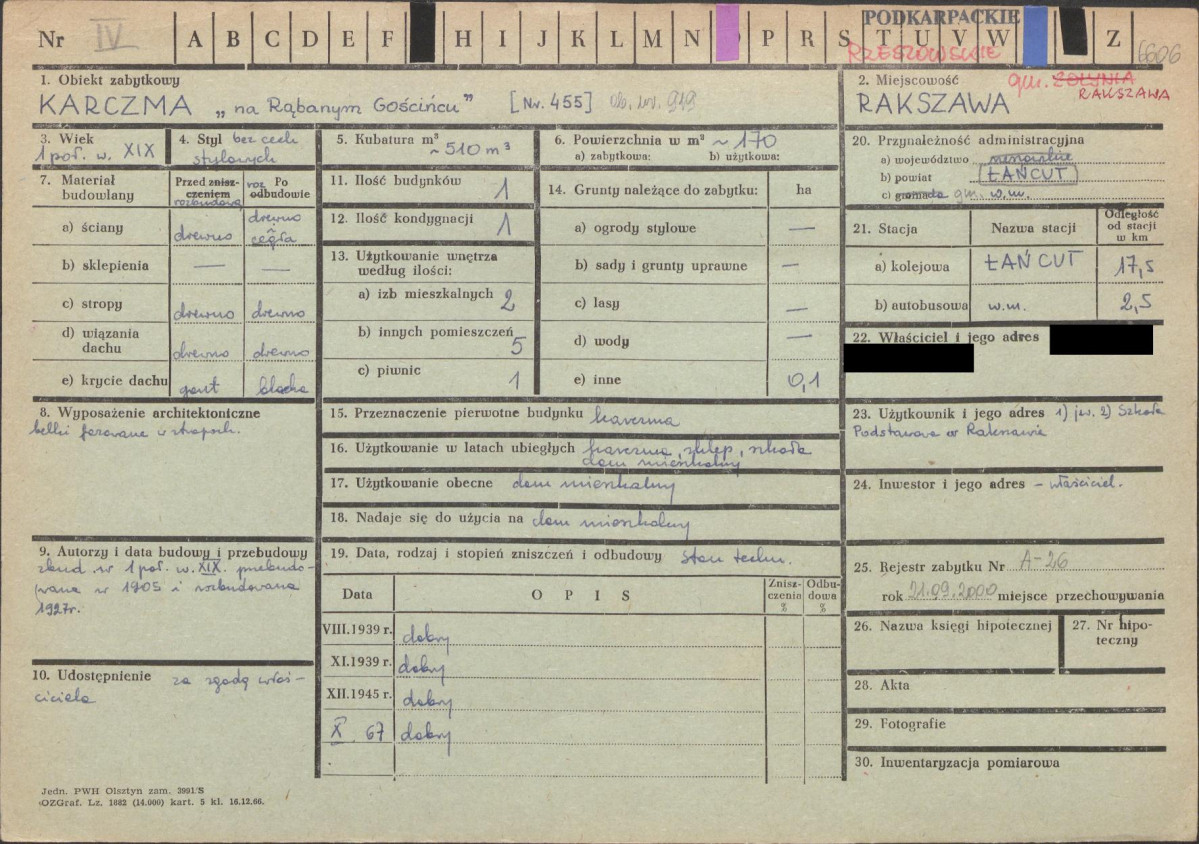 Nr IV A B C D E F H I J K L M N P R S T U V W Z
PODKARPACKIE
RZESZOWSKIE
6606
1. Obiekt zabytkowy
KARCZMA „na Rąbanym Gościńcu” [Nr. 455] ob. inv. 919
2. Miejscowość gm. ŻOŁYNIA
RAKSZAWA RAKSZAWA
3. Wiek
1 poł. w. XIX
4. Styl bez cech
stylowych
5. Kubatura m³
~ 510 m³
6. Powierzchnia w m² ~ 170
a) zabytkowa: b) użytkowa:
7. Materiał
budowlany
Przed znisz-
czeniem
rozbudową
Po
roz
odbudowie
a) ściany drewno drewno
cegła
b) sklepienia — —
c) stropy drewno drewno
d) wiązania
dachu drewno drewno
e) krycie dachu gont blacha
8. Wyposażenie architektoniczne
belki fazowane w stropach.
9. Autorzy i data budowy i przebudowy
zbud. w 1 poł. w. XIX. przebudo-
wana w 1905 i rozbudowana
1927r.
10. Udostępnienie za zgodą właś-
ciciela
11. Ilość budynków 1
12. Ilość kondygnacji 1
13. Użytkowanie wnętrza
według ilości:
a) izb mieszkalnych 2
b) innych pomieszczeń 5
c) piwnic 1
14. Grunty należące do zabytku: ha
a) ogrody stylowe —
b) sady i grunty uprawne —
c) lasy —
d) wody —
e) inne 0,1
15. Przeznaczenie pierwotne budynku karczma
16. Użytkowanie w latach ubiegłych karczma, sklep, szkoła
dom mieszkalny
17. Użytkowanie obecne dom mieszkalny
18. Nadaje się do użycia na dom mieszkalny
19. Data, rodzaj i stopień zniszczeń i odbudowy stan techn.
Data O P I S Znisz-
czenia
% Odbu-
dowa
%
VIII.1939 r. dobry
XI.1939 r. dobry
XII.1945 r. dobry
X 67 dobry
20. Przynależność administracyjna
a) województwo rzeszowskie
b) powiat ŁAŃCUT
c) gromada gm. w.m.
21. Stacja Nazwa stacji Odległość
od stacji
w km
a) kolejowa ŁAŃCUT 17,5
b) autobusowa w.m. 2,5
22. Właściciel i jego adres
23. Użytkownik i jego adres 1) jw. 2) Szkoła
Podstawowa w Rakszawie
24. Inwestor i jego adres – właściciel.
25. Rejestr zabytku Nr A-26
rok 21.09.2000 miejsce przechowywania
26. Nazwa księgi hipotecznej
27. Nr hipo-
teczny
28. Akta
29. Fotografie
30. Inwentaryzacja pomiarowa
Jedn. PWH Olsztyn zam. 3991/S
OZGraf. Lz. 1882 (14.000) kart. 5 kl. 16.12.66.